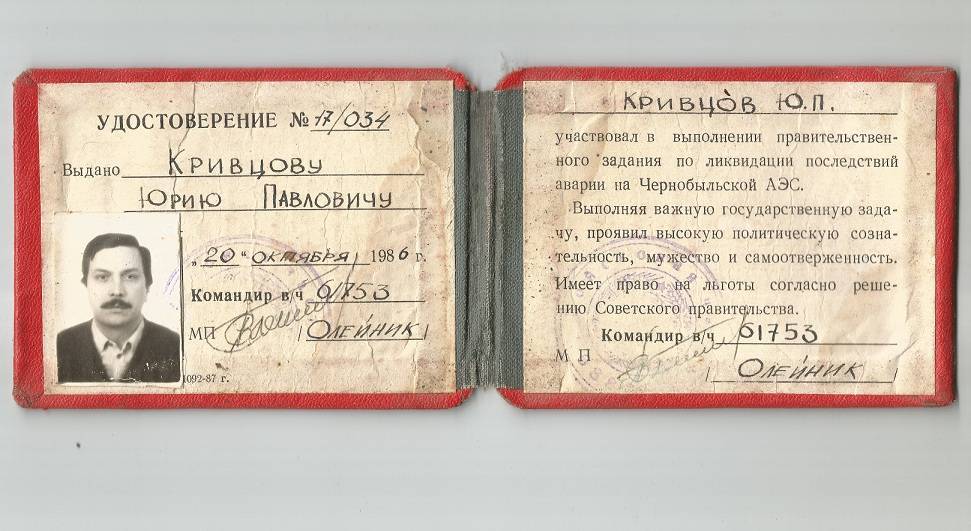 УДОСТОВЕРЕНИЕ № 17/034
Выдано Кривцову
Юрию Павловичу
„20" октября 1986 г.
Командир в/ч 61753
МП (Олейник)
1092-87 г.
Кривцов Ю.П.
участвовал в выполнении правительствен-
ного задания по ликвидации последствий
аварии на Чернобыльской АЭС.
Выполняя важную государственную зада-
чу, проявил высокую политическую созна-
тельность, мужество и самоотверженность.
Имеет право на льготы согласно реше-
нию Советского правительства.
Командир в/ч 61753
МП
(Олейник)